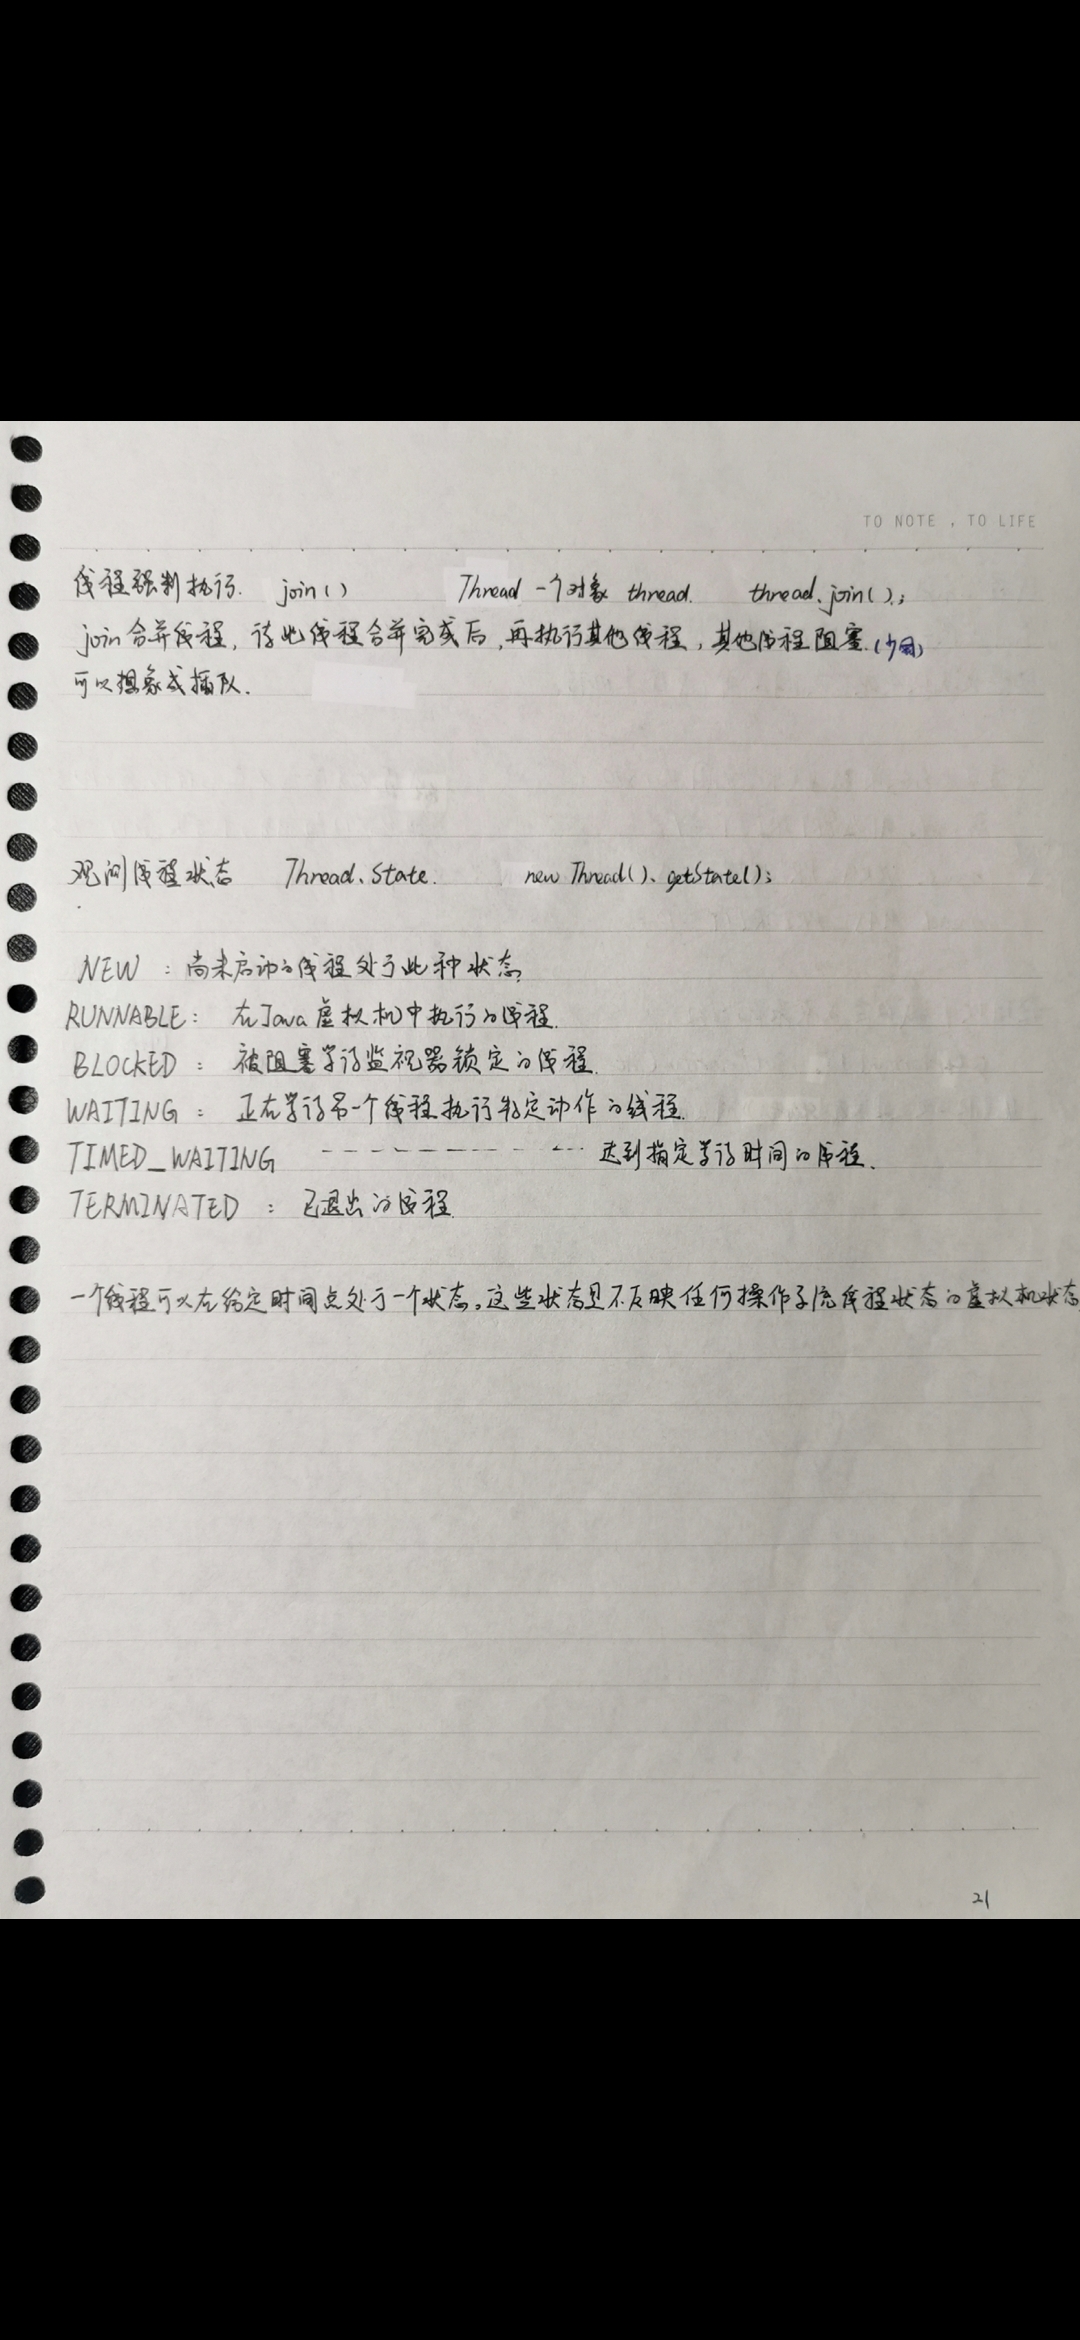 TO NOTE , TO LIFE
线程强制执行. join() Thread 一个对象 thread. thread.join();
join合并线程, 待此线程合并完成后,再执行其他线程,其他线程阻塞.(少用)
可以想象成插队.
观测线程状态 Thread.State. new Thread().getState();
NEW : 尚未启动的线程处于此种状态
RUNNABLE: 在Java虚拟机中执行的线程.
BLOCKED : 被阻塞等待监视器锁定的线程.
WAITING : 正在等待另一个线程执行特定动作的线程.
TIMED_WAITING ----------- 达到指定等待时间的线程.
TERMINATED : 已退出的线程.
一个线程可以在给定时间点处于一个状态。这些状态是不反映任何操作系统线程状态的虚拟机状态
21